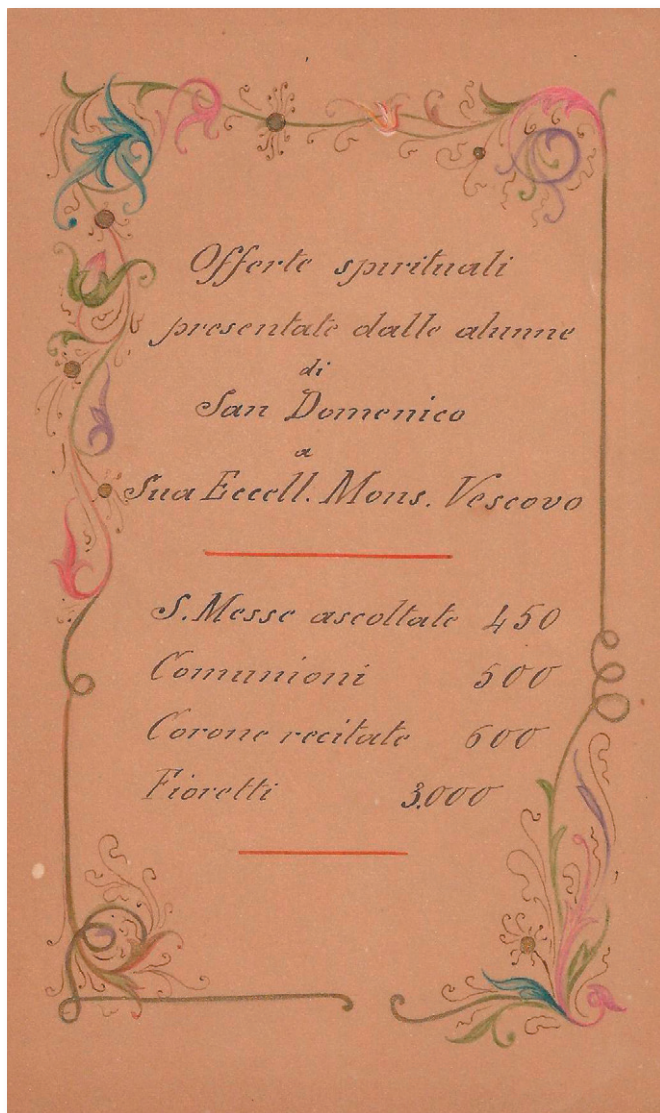 Offerte spirituali
presentate dalle alunne
di
San Domenico
a
Sua Eccell. Mons. Vescovo
S. Messe ascoltate 450
Comunioni 500
Corone recitate 600
Fioretti 3.000